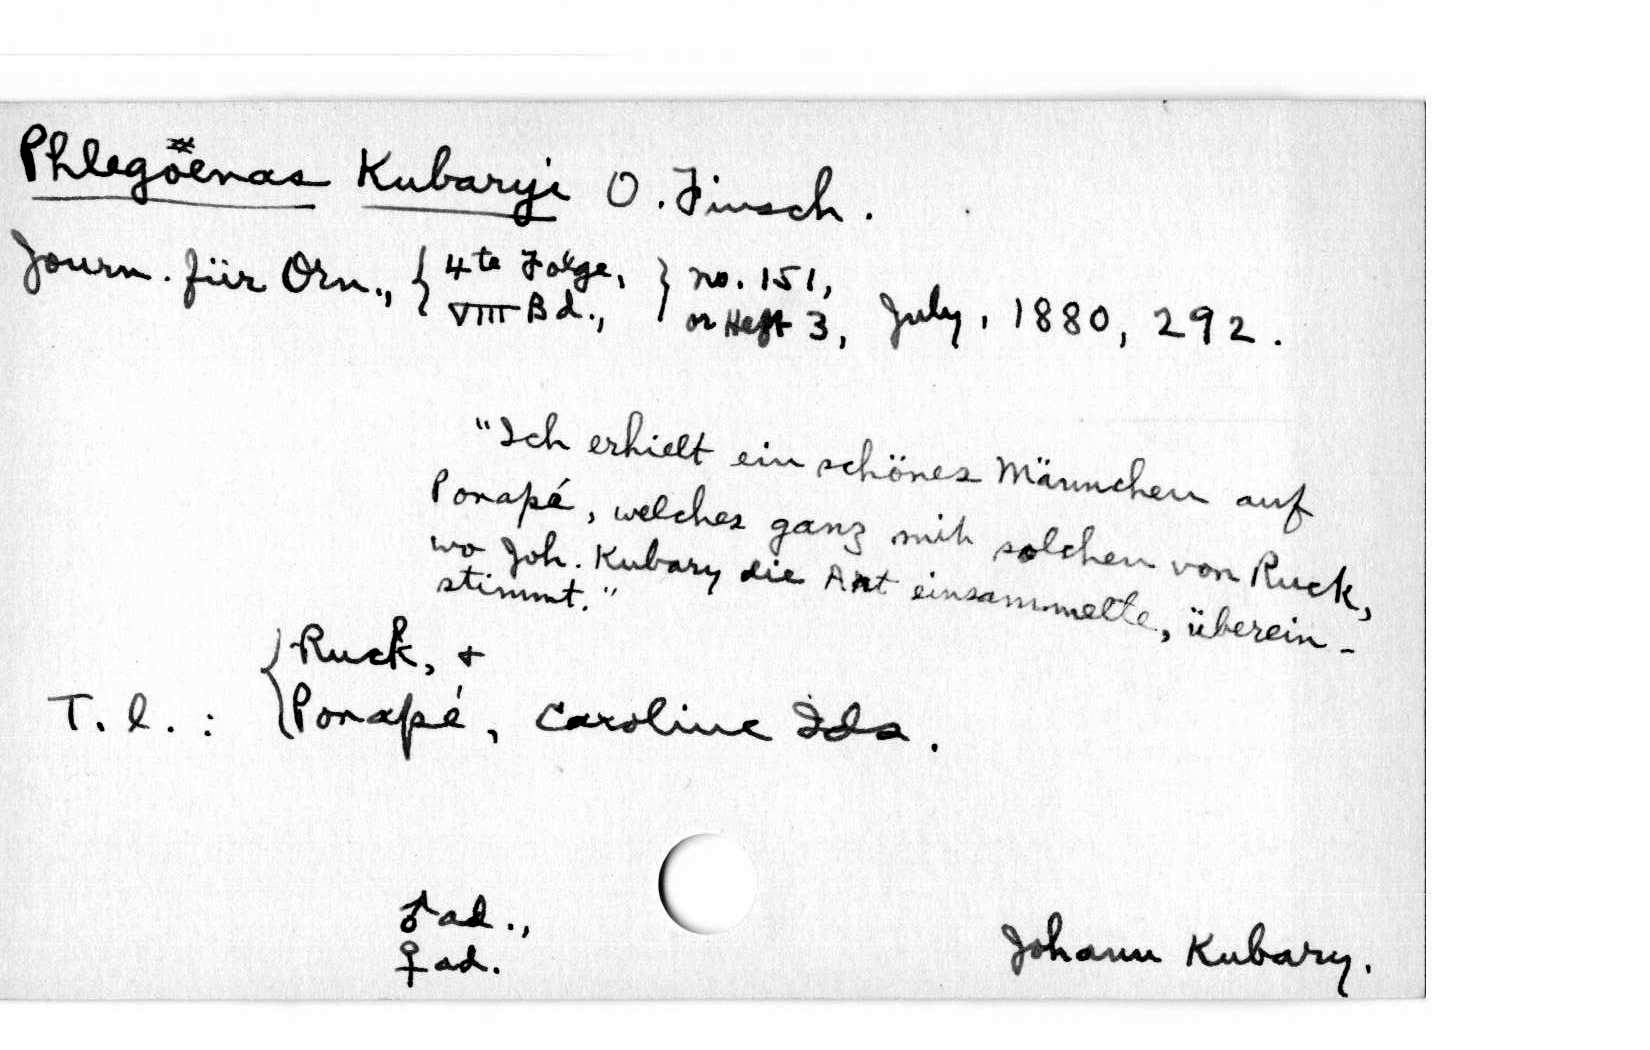 Phlegöenas Kubaryi O. Finsch.
Journ. für Orn., { 4te Folge, } no. 151,
VIII Bd., or Heft 3, July, 1880, 292.
"Ich erhielt ein schönes Männchen auf
Ponapé, welches ganz mit solchen von Ruck,
wo Joh. Kubary die Art einsammelte, überein-
stimmt."
{ Ruck, +
T. l. : Ponapé, Caroline Ids.
♂ ad.,
♀ ad.
Johann Kubary.